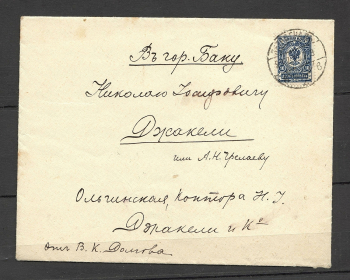 Въ гор. Баку
Николаю Іосифовичу
Джакели
или А.Н.
Ольгинская Контора Н. І.
Джакели и Ко
отъ В. К. Долгова